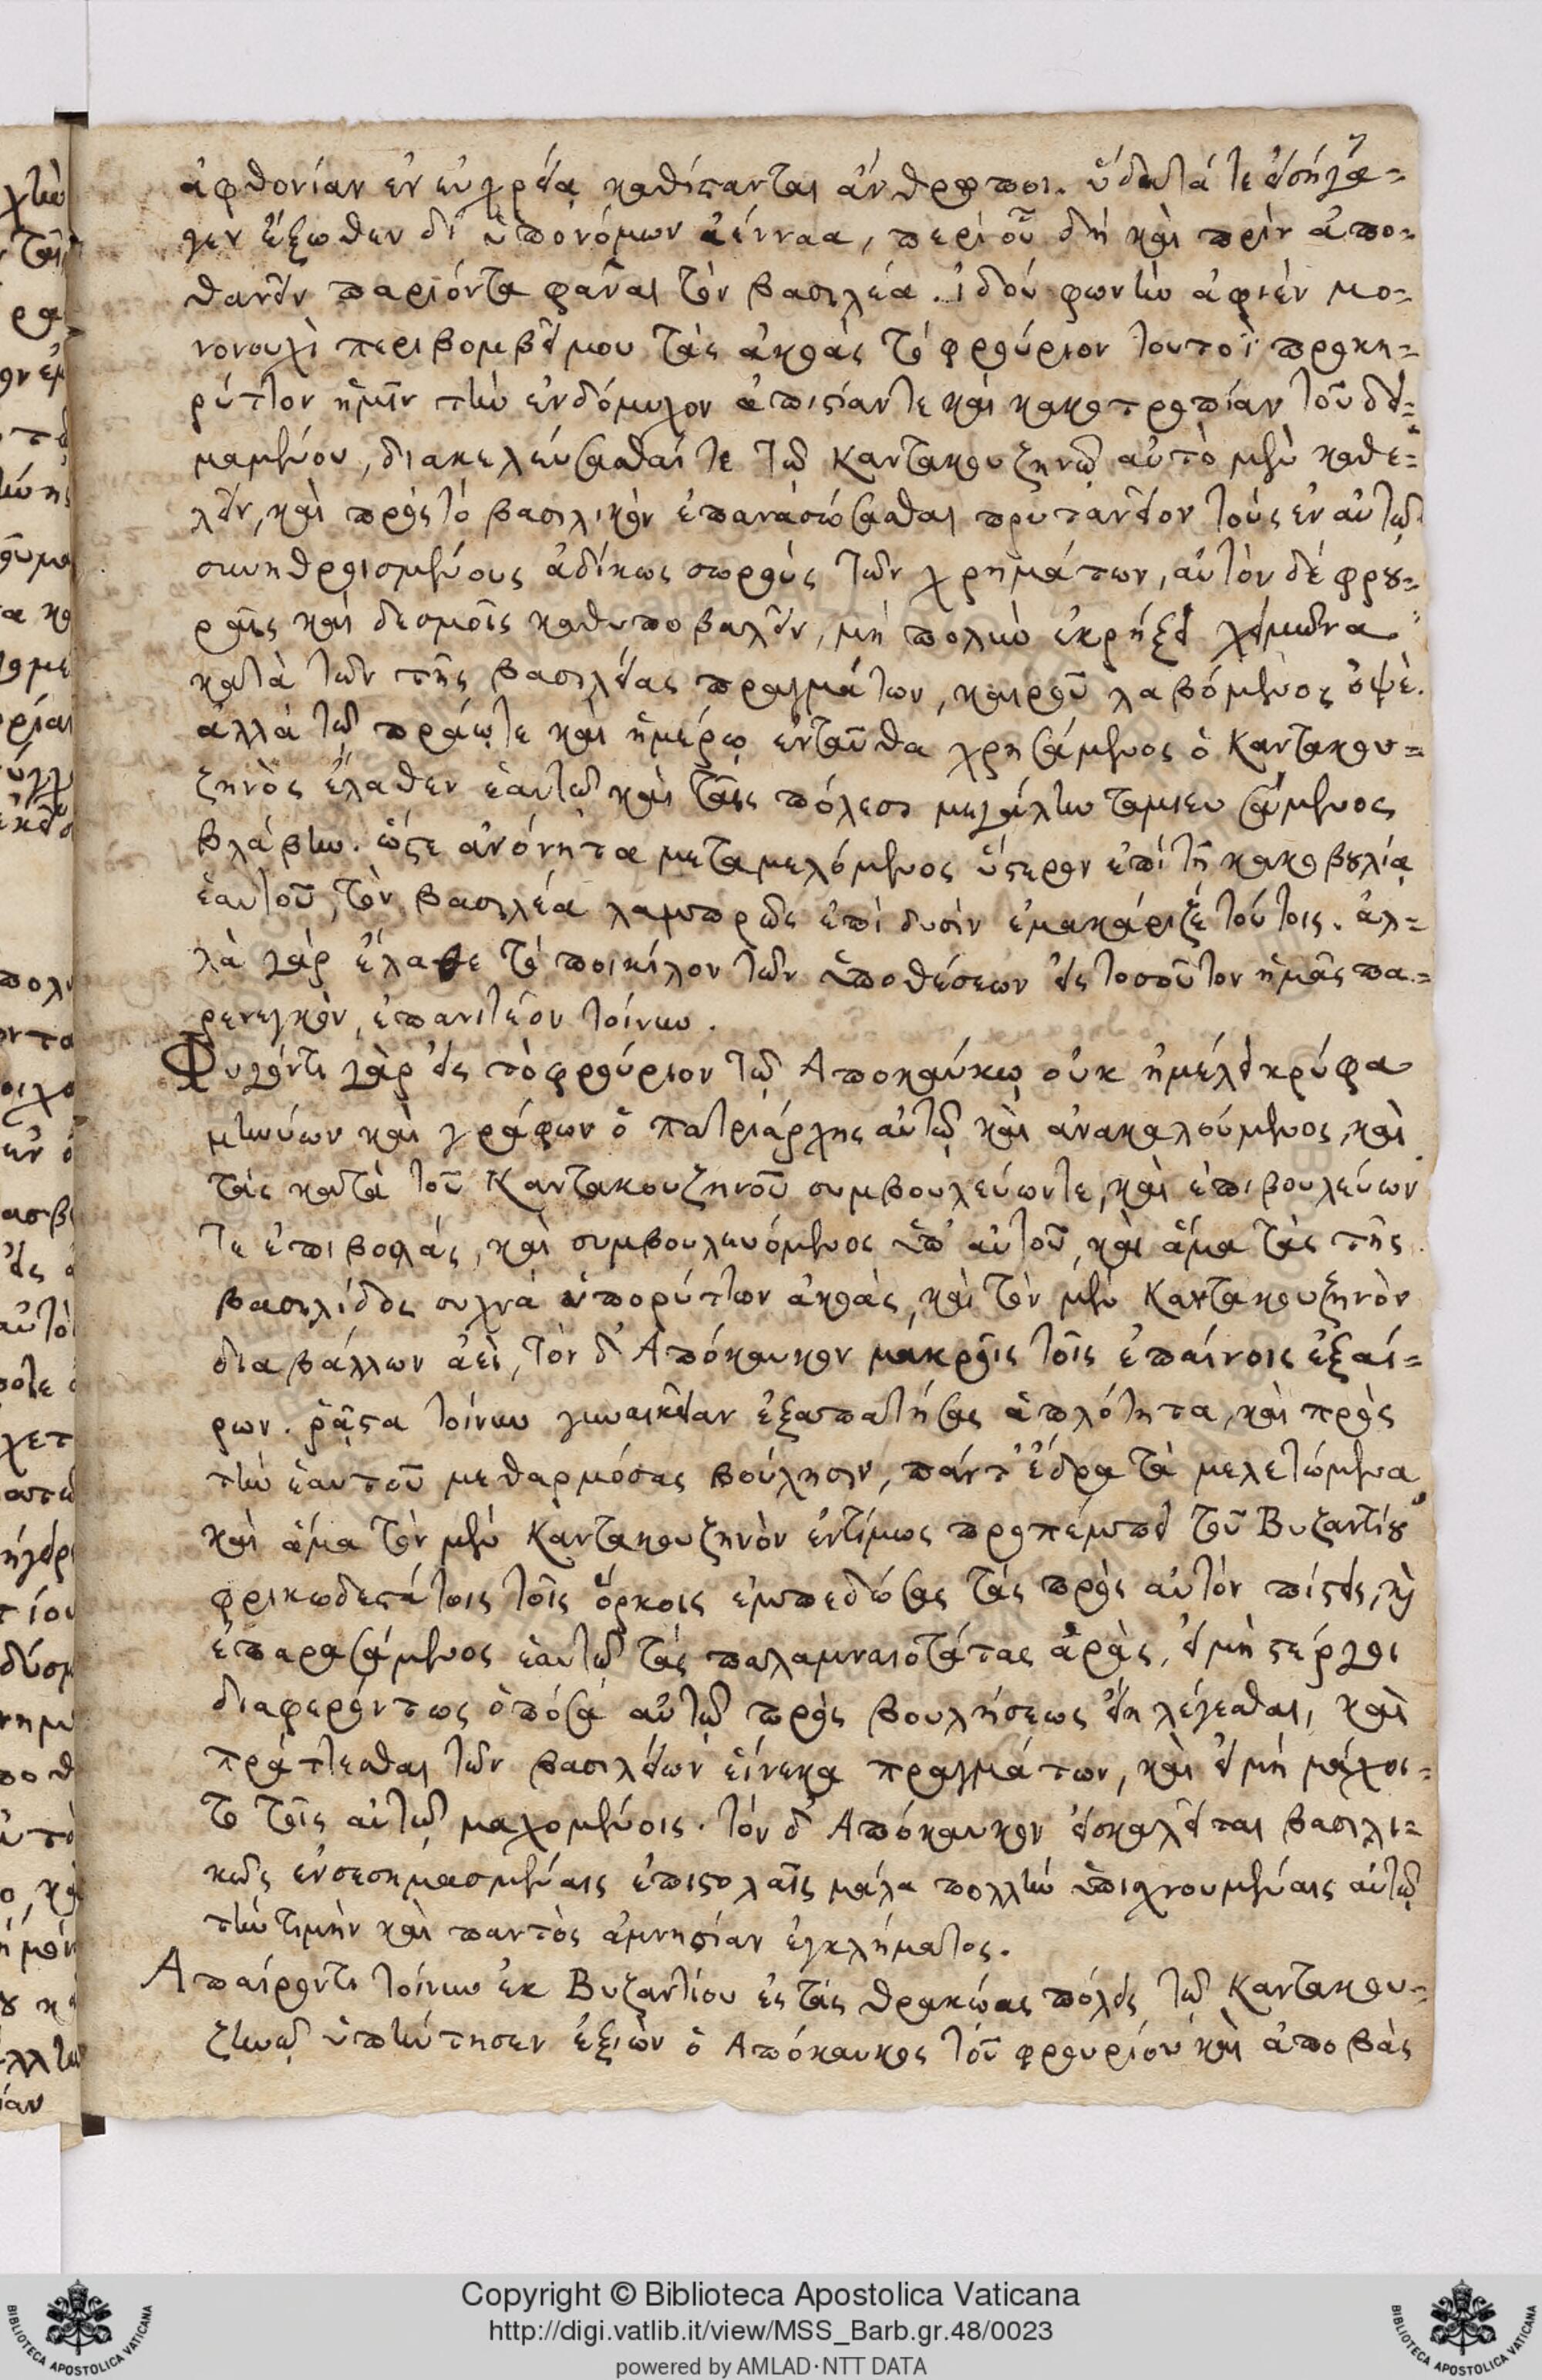 7
ἀφθονίαν ἐν εὐχρείᾳ καθίστανται ἄνθρωποι. ὕδατά τε εἰσήγα-
γεν ἔξωθεν δι' ὑπονόμων ἀένναα, περὶ οὗ δὴ καὶ πρὶν ἀπο-
θανεῖν παριόντα φᾶναι τὸν βασιλέα. ἰδού φωνὴν ἀφιὲν μο-
νονουχὶ περιβομβεῖ μου τὰς ἀκοὰς τὸ φρούριον τουτοῒ προκη-
ρύττον ἡμῖν τὴν ἐνδόμυχον ἀπιστίαν τε καὶ κακοτροπίαν τοῦ δει-
μαμένου, διακελεύσασθαί τε τῷ Καντακουζηνῷ αὐτὸ μὲν καθε-
λεῖν, καὶ πρὸς τὸ βασιλικὸν ἐπανασώσασθαι πρυτανεῖον τοὺς ἐν αὐτῷ
συνηθροισμένους ἀδίκως σωροὺς τῶν χρημάτων, αὐτὸν δὲ φρου-
ραῖς καὶ δεσμοῖς καθυποβαλεῖν, μὴ πολὺν ἐκρήξει χειμῶνα
κατὰ τῶν τῆς βασιλείας πραγμάτων, καιροῦ λαβόμενος ὀψέ.
ἀλλὰ τῷ πράῳ τε καὶ ἡμέρῳ ἐνταῦθα χρησάμενος ὁ Καντακου-
ζηνὸς ἔλαθεν ἑαυτῷ καὶ ταῖς πόλεσι μεγάλην ταμιευσάμενος
βλάβην. ὥστε ἀνόνητα μεταμελόμενος ὕστερον ἐπὶ τῇ κακοβουλίᾳ
ἑαυτοῦ, τὸν βασιλέα λαμπρῶς ἐπὶ δυσὶν ἐμακάριζε τούτοις. ἀλ-
λὰ γὰρ ἔλαθε τὸ ποικίλον τῶν ὑποθέσεων εἰς τοσοῦτον ἡμᾶς πα-
ρενεγκὸν, ἐπανιτέον τοίνυν.
Φυγόντι γὰρ εἰς τὸ φρούριον τῷ Ἀποκαύκῳ οὐκ ἠμέλει κρύφα
μηνύων καὶ γράφων ὁ πατριάρχης αὐτῷ καὶ ἀνακαλούμενος, καὶ
τὰς κατὰ τοῦ Καντακουζηνοῦ συμβουλεύων τε, καὶ ἐπιβουλεύων
τε ἐπιβολάς, καὶ συμβουλευόμενος ὑπ' αὐτοῦ, καὶ ἅμα τὰς τῆς
βασιλίδος συχνὰ ὑπορύττων ἀκοὰς, καὶ τὸν μὲν Καντακουζηνὸν
διαβάλλων ἀεὶ, τὸν δ' Ἀπόκαυκον μακροῖς τοῖς ἐπαίνοις ἐξαί-
ρων. ῥᾷστα τοίνυν γυναικείαν ἐξαπατήσας ἁπλότητα, καὶ πρὸς
τὴν ἑαυτοῦ μεθαρμόσας βούλησιν, πάντ' ἔδρα τὰ μελετώμενα
καὶ ἅμα τὸν μὲν Καντακουζηνὸν ἐντίμως προπέμπει τοῦ Βυζαντίου
φρικωδεστάτοις τοῖς ὅρκοις ἐμπεδώσας τὰς πρὸς αὐτόν πίστεις, καὶ
ἐπαρασάμενος ἑαυτῷ τὰς παλαμναιοτάτας ἀρὰς, εἰ μὴ στέργοι
διαφερόντως ὁπόσα αὐτῷ πρὸς βουλήσεως εἴη λέγεσθαι, καὶ
πράττεσθαι τῶν βασιλείων εἵνεκα πραγμάτων, καὶ εἰ μὴ μάχοι-
το τοῖς αὐτῷ μαχομένοις. τὸν δ' Ἀπόκαυκον εἰσκαλεῖται βασιλι-
κῶς ἐνσεσημασμέναις ἐπιστολαῖς μάλα πολλὴν ὑπισχνουμέναις αὐτῷ
τὴν τιμὴν καὶ παντὸς ἀμνηστίαν ἐγκλήματος.
Ἀπαίροντι τοίνυν ἐκ Βυζαντίου ἐς τὰς θρακώας πόλεις τῷ Καντακου-
ζηνῷ ὑπήντησεν ἐξιὼν ὁ Ἀπόκαυκος τοῦ φρουρίου καὶ ἀποβὰς
Copyright © Biblioteca Apostolica Vaticana
http://digi.vatlib.it/view/MSS_Barb.gr.48/0023
powered by AMLAD·NTT DATA
BIBLIOTECA APOSTOLICA VATICANA
BIBLIOTECA APOSTOLICA VATICANA